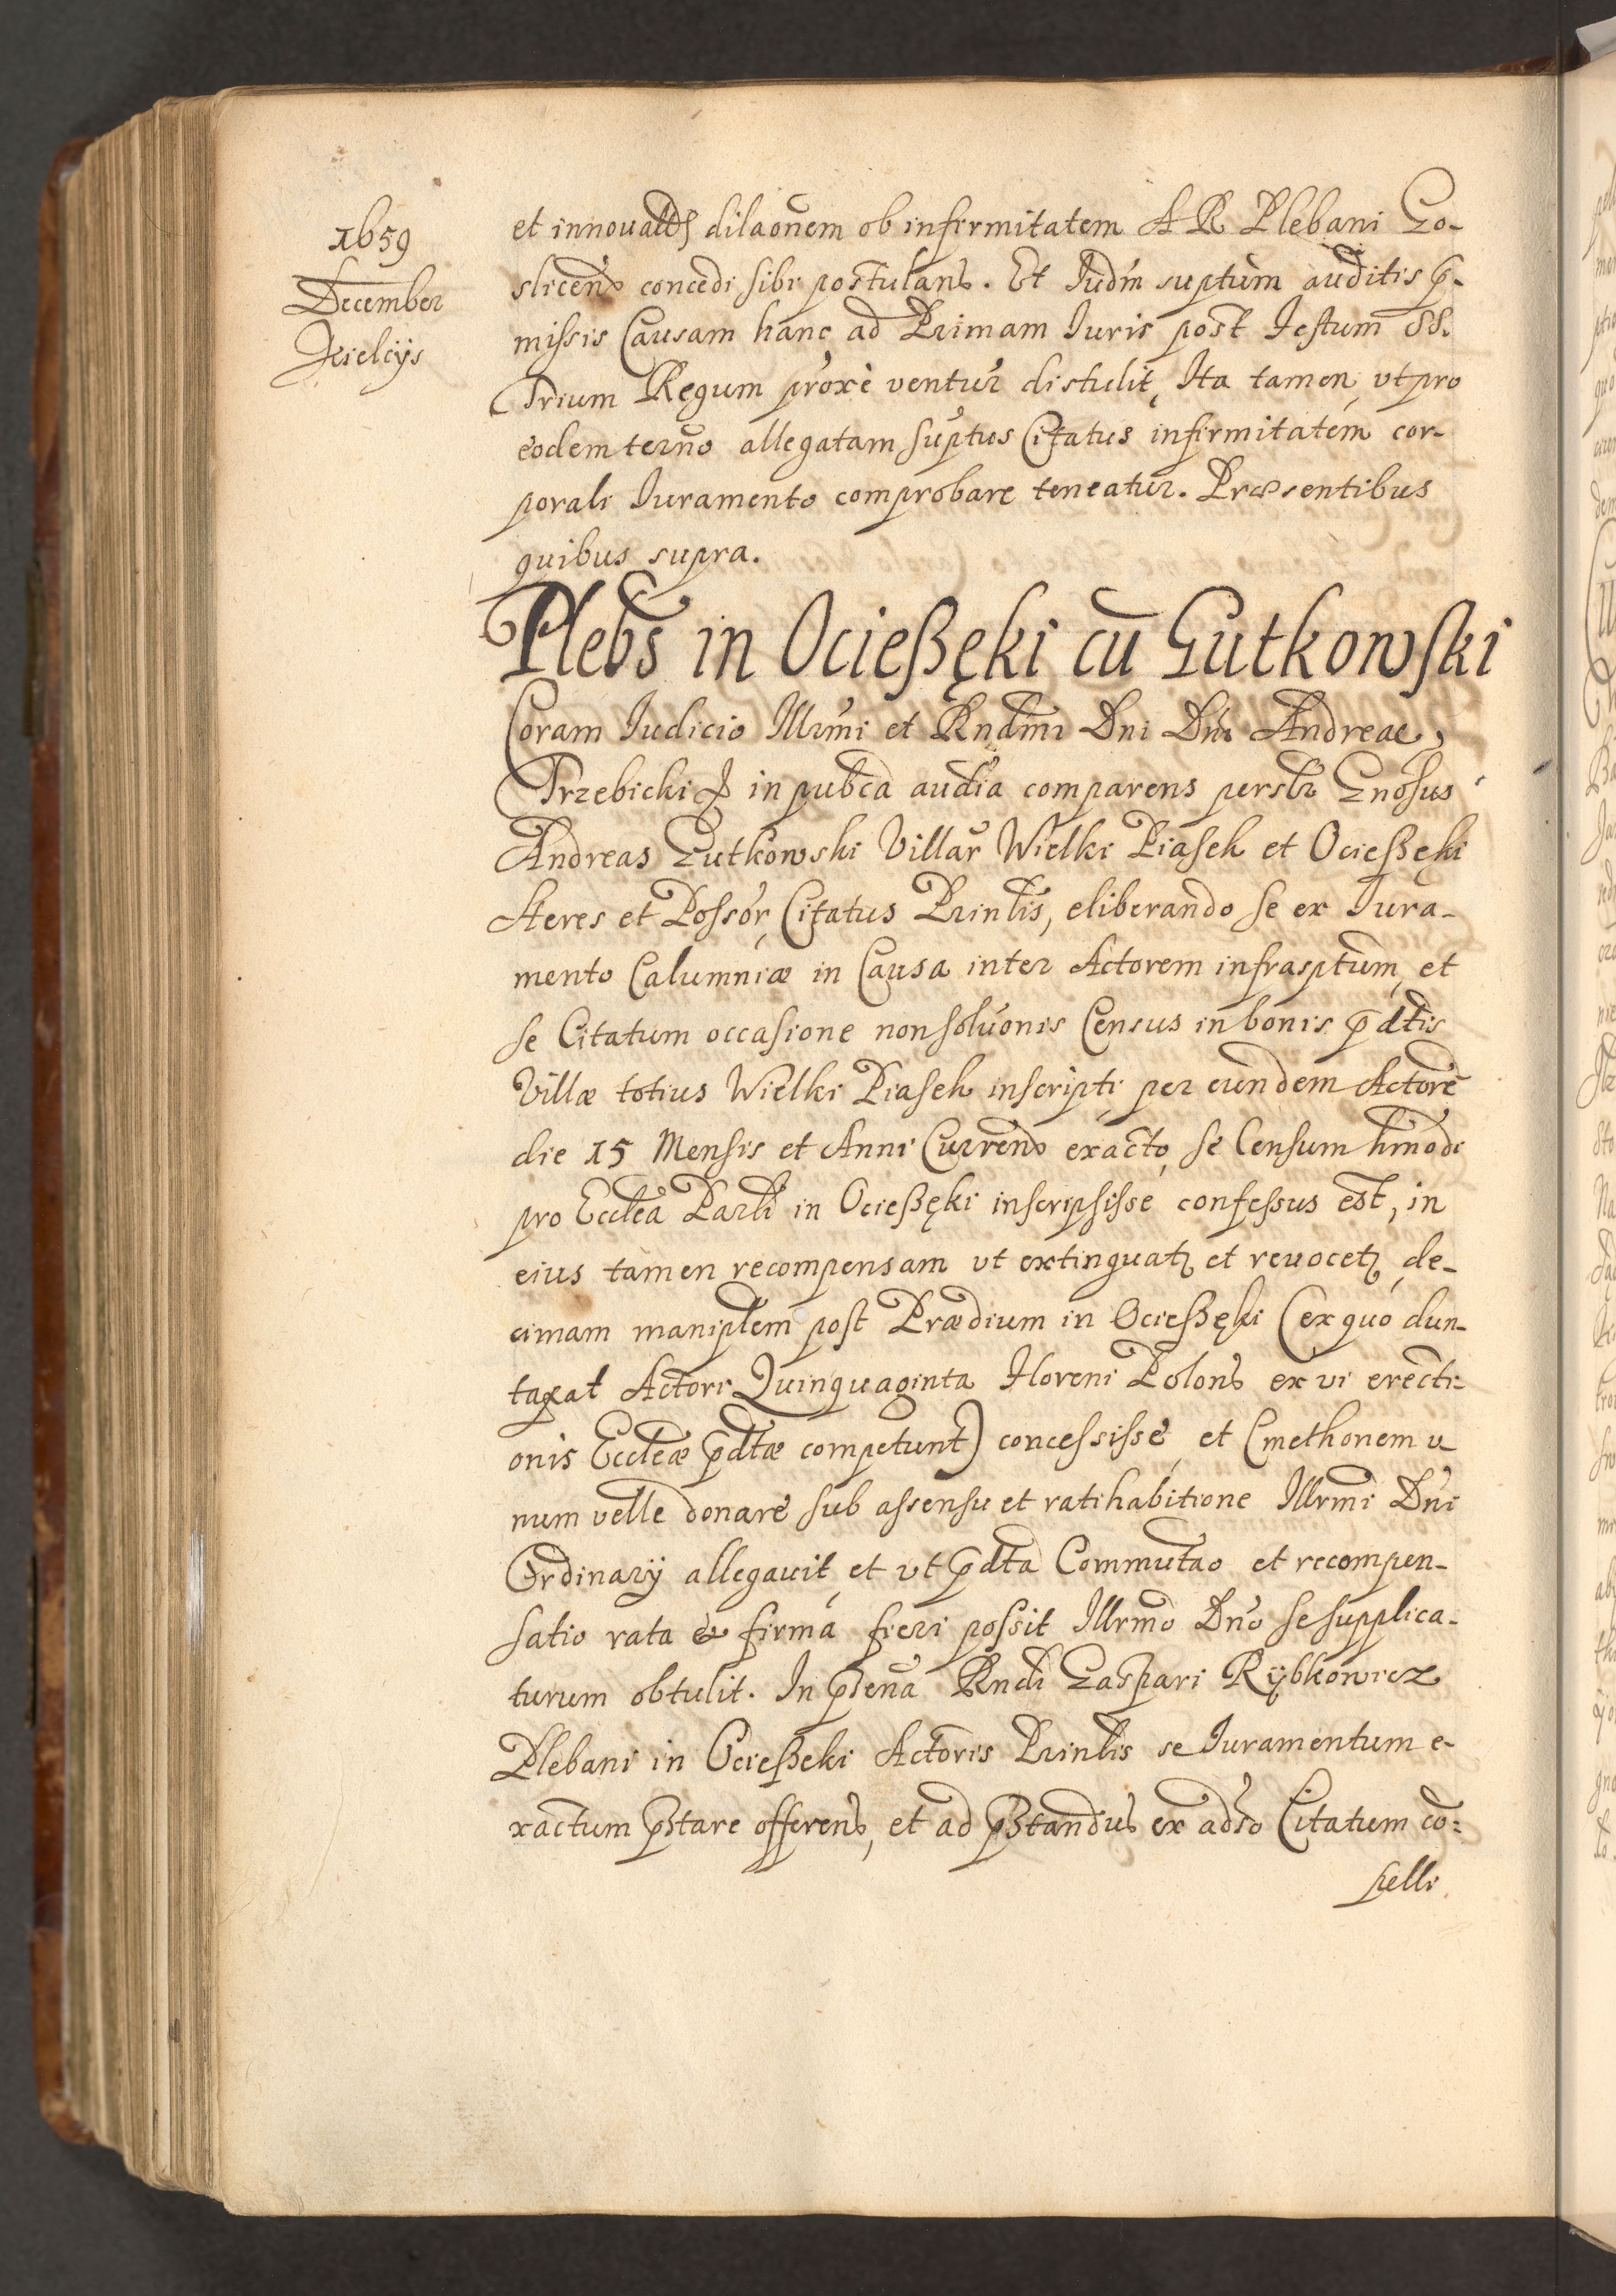 1659
December
Kielcijs
et innouatt dilaonem ob infirmitatem A R Plebani Go-
slicens concedi sibi postulans. Et Iudm suptum auditis p̄-
missis Causam hanc ad Primam Iuris post Festum SS.
Trium Regum proxe ventur distulit, Ita tamen, vt pro
eodem termo allegatam suptus Citatus infirmitatem cor-
porali Iuramento comprobare teneatur. Præsentibus
quibus supra.
Plebs in Ocießęki cū Gutkowski
Coram Iudicio Illrmi et Rndmi Dni Dni Andreae
Trzebicki in pubca audia comparens persltr Gnosus
Andreas Gutkowski Villar Wielki Piasek et Ocießęki
Heres et Possor, Citatus Prinlis, eliberando se ex Iura-
mento Calumniæ in Causa inter Actorem infrasptum, et
se Citatum occasione non soluonis Census in bonis p̄dtis
Villæ totius Wielki Piasek inscripti per eundem Actorē
die 15 Mensis et Anni Curren exacto, se Censum hmodi
pro Ecclea Parli in Ocießęki inscripsisse confessus est, in
eius tamen recompensam vt extinguatr et reuocetr, de-
cimam maniplem post Prædium in Ocießęki (ex quo dun-
taxat Actori Quinquaginta Floreni Polons ex vi erecti-
onis Eccleæ p̄dtæ competunt) concessisse, et Cmethonem v-
num velle donare sub assensu et ratihabitione Illrmi Dni
Ordinarij allegauit, et vt p̄dta Commutao et recompen-
satio rata & firma fieri possit Illrmo Dno se supplica-
turum obtulit. In p̄sena Rndi Gaspari Rybkowicz
Plebani in Ocießeki Actoris Prinlis se Iuramentum e-
xactum p̄stare offerens, et ad p̄standus ex adso Citatum cō-
pelli